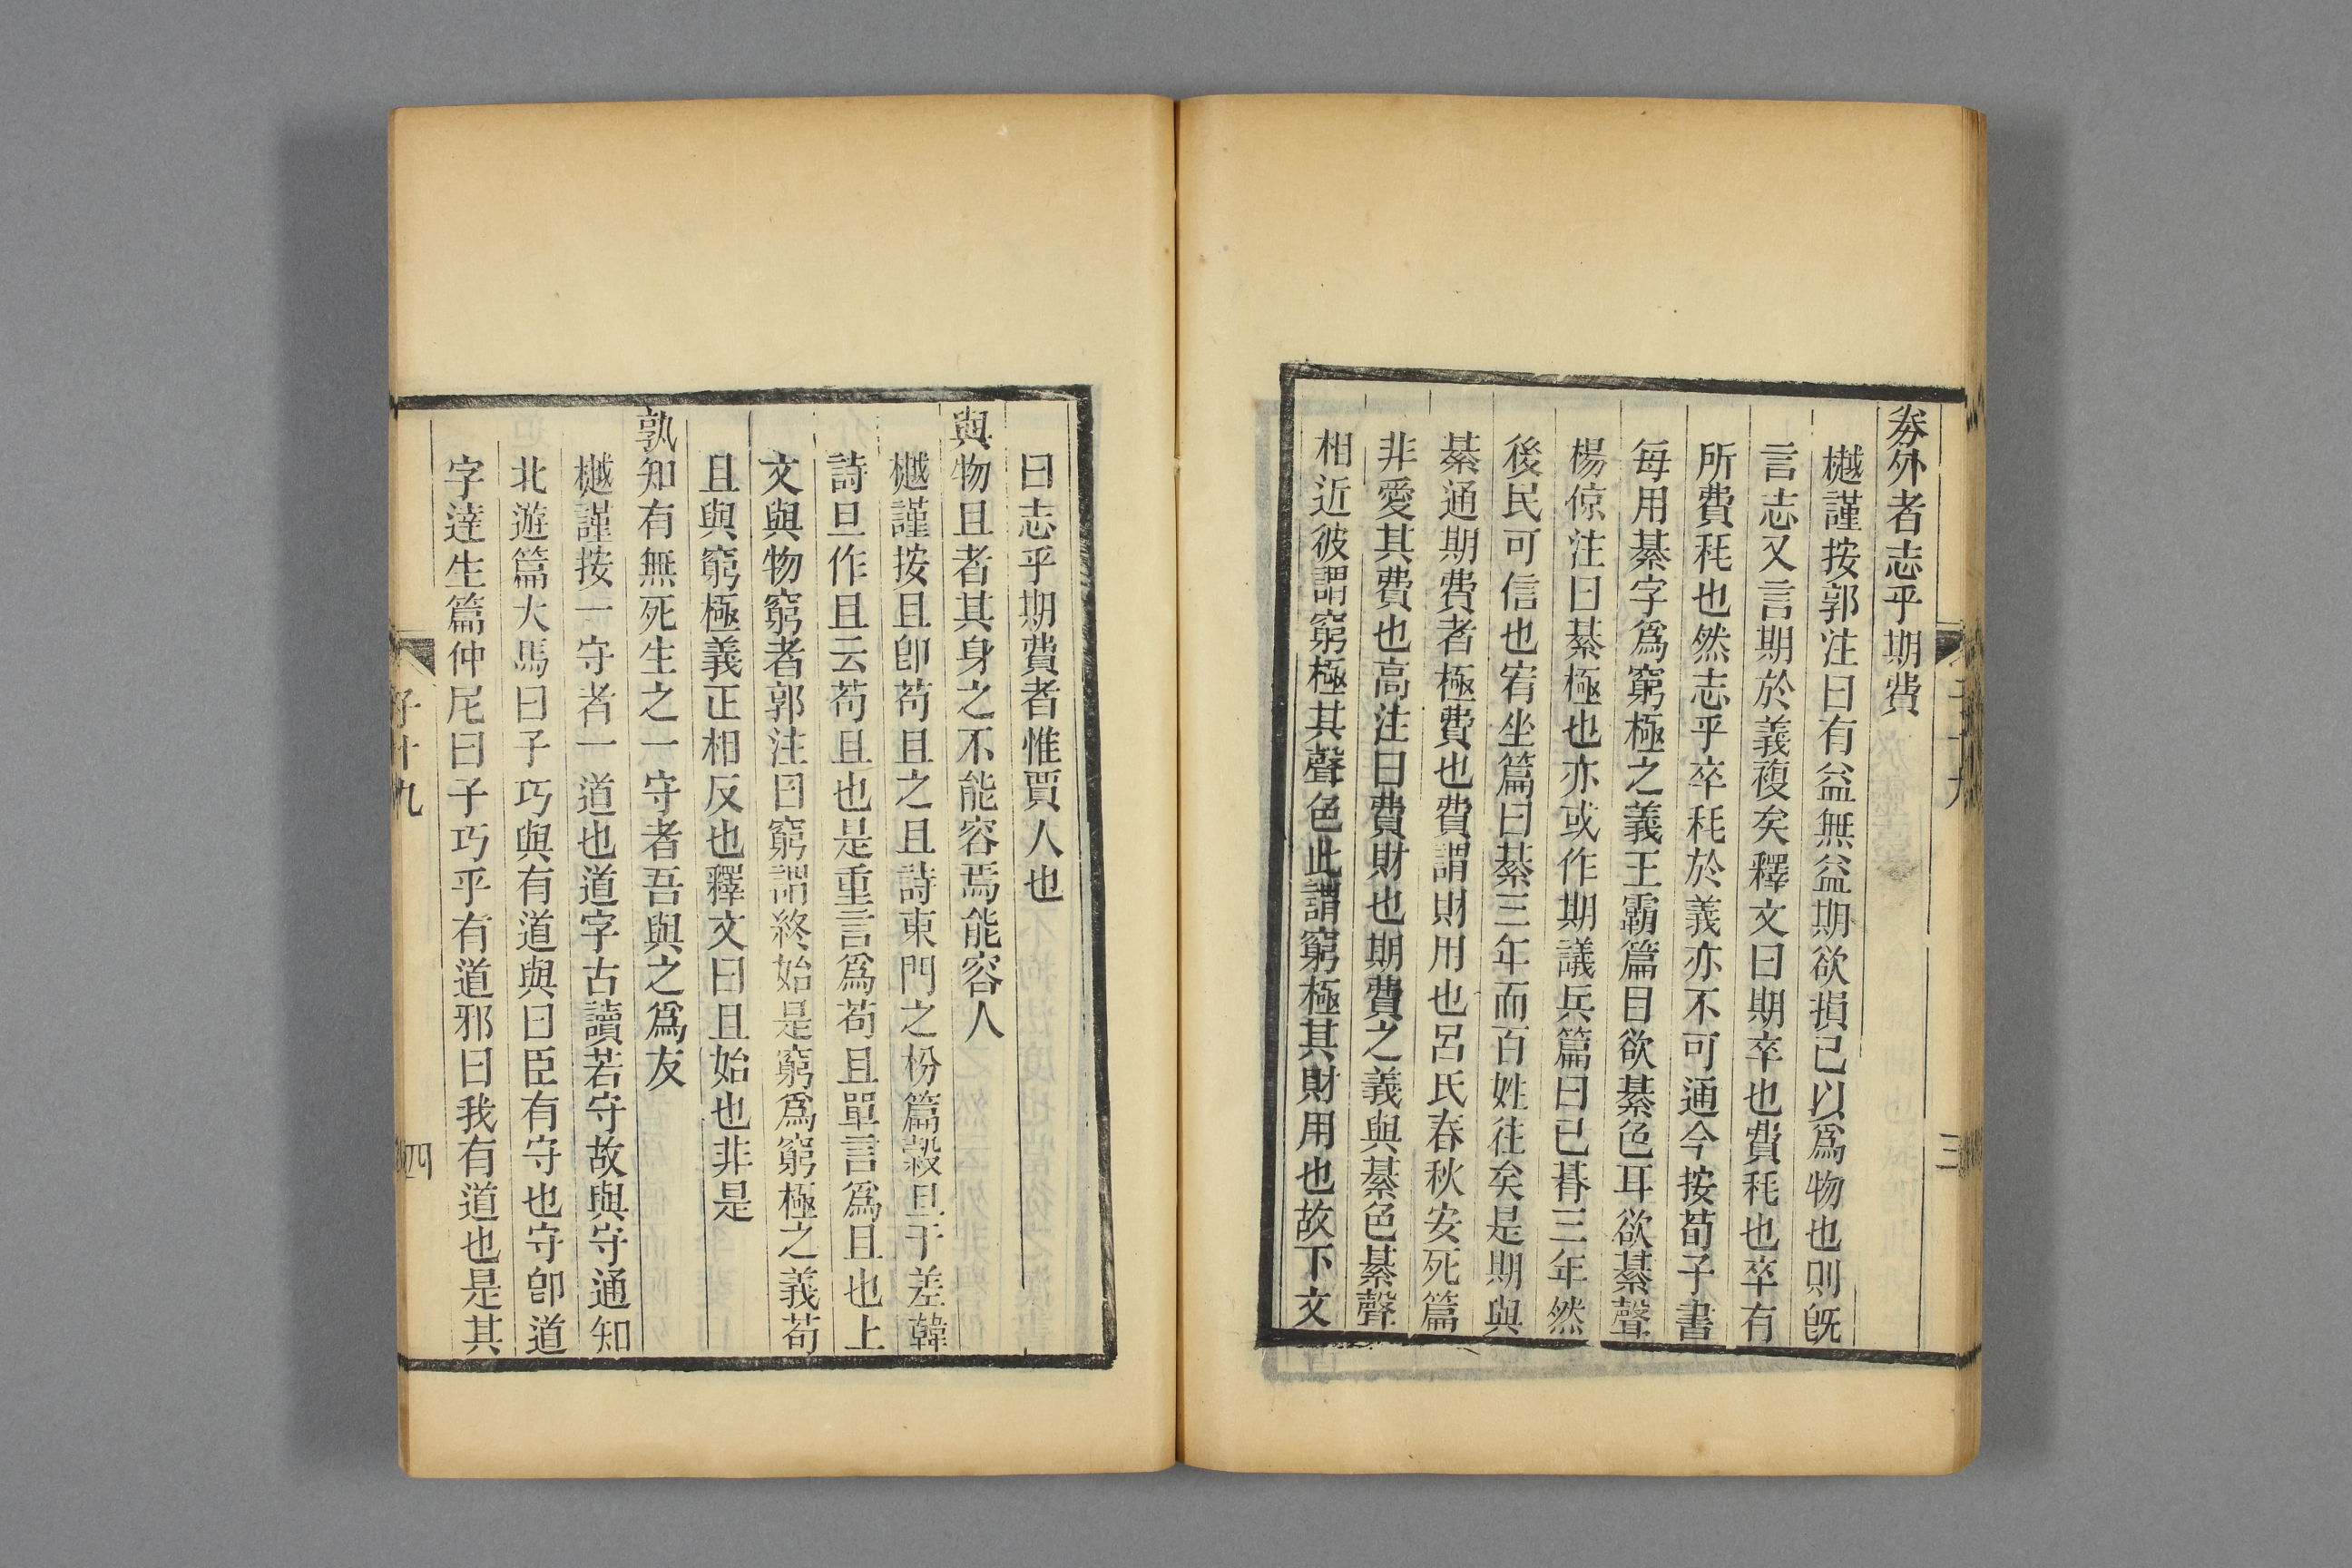 券外者志乎期費
樾謹按郭注曰有益無益期欲損已以爲物也則旣
言志又言期於義複矣釋文曰期卒也費秏也卒有
所費秏也然志乎卒秏於義亦不可通今按荀子書
每用綦字爲窮極之義王霸篇目欲綦色耳欲綦聲
楊倞注曰綦極也亦或作期議兵篇曰已朞三年然
後民可信也宥坐篇曰綦三年而百姓往矣是期與
綦通期費者極費也費謂財用也呂氏春秋安死篇
非愛其費也高注曰費財也期費之義與綦色綦聲
相近彼謂窮極其聲色此謂窮極其財用也故下文
三
曰志乎期費者惟賈人也
與物且者其身之不能容焉能容人
樾謹按且卽苟且之且詩東門之枌篇穀旦于差韓
詩旦作且云苟且也是重言爲苟且單言爲且也上
文與物窮者郭注曰窮謂終始是窮爲窮極之義苟
且與窮極義正相反也釋文曰且始也非是
孰知有無死生之一守者吾與之爲友
樾謹按一守者一道也道字古讀若守故與守通知
北遊篇大馬曰子巧與有道與曰臣有守也守卽道
字達生篇仲尼曰子巧乎有道邪曰我有道也是其
子十九
四